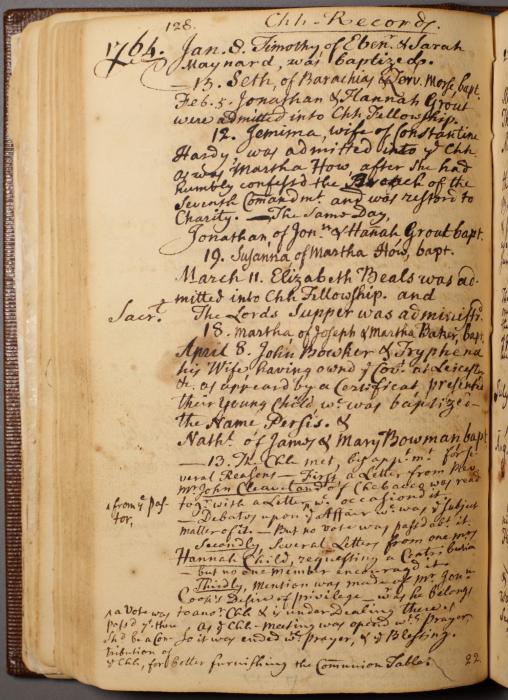 128. Chh. Records.
1764. Jan. 8. Timothy of Eben.r & Sarah
Maynard, was baptized.
— 15. Seth, of Barachias & Morse, bapt.
Feb. 5. Jonathan & Hannah Grout
were admitted into Chh Fellowship.
12. Jemima, wife of Constantine
Hardy, was admitted into ye Chh.
as was Martha How, after She had
humbly confess'd the Breach of the
Seventh Comandmt. and was restor'd to
Charity. — The Same Day,
Jonathan of Jon.n & Hanah Grout bapt.
19. Susanna of Martha How, bapt.
March 11. Elizabeth Beals was ad-
mitted into Chh Fellowship. and
Sacr.t The Lords Supper was administr'd
18. Martha of Joseph & Martha Baker, bapt.
April 8. John Bowker & Tryphena
his Wife having own'd ye Cov.t at Leicester
&c. as appear'd by a Certificat, presented
their Young Child wc. was baptized
the Name, Persis. &
Nath.l of James & Mary Bowman bapt
— 13. The Chh met, by appt.mt for se-
veral Reasons — First a Letter from Rev.
mr. John Cleaveland of Chebacco, was read
tog.r with a Letter, wc. occasion'd it.
— Debates upon ye Affair wc. was ye Subject
matter of it. — But no vote was pass'd abt it.
^ from ye Pas-
tor,
Secondly Several Letters from one mrs
Hannah Child, requesting a Contribution
— but no one member encourag'd it.
Thirdly, mention was made of mr. Jon.n
Cook's Desire of privilege — wn. he belongs
to anor. Chh & is under Dealing there.
^ a Vote was
pass'd yt. there
sh'd be a Con-
tribution of
ye Chh, for better furnishing the Communion Table.
As ye Chh-meeting was open'd wth Prayer,
so it was ended wth. prayer, & ye Blessing.
22.